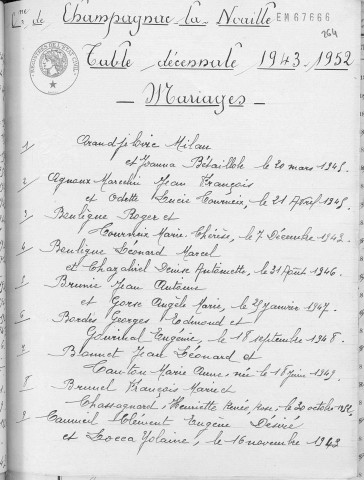 Cne de Champagnac-la-Noaille EM67666
264
Table décennale 1943-1952
- Mariages -
1/ Milan
et Joanna Bétaillole, le 20 mars 1945.
2 Agnoux Marcelin Jean François
et Odette Lucie Tourneix, le 21 Avril 1945.
3 Bouligue Roger et
Tourneix Marie Thérèse, le 7 Décembre 1943.
4 Bouligue Léonard Marcel
et Chazabriel Denise Antoinette, le 31 Août 1946.
5 Brunie Jean Antoine
et Gorse Angèle Marie, le 29 janvier 1947.
6 Bordes Georges Edmond et
Journal Eugénie, le 18 septembre 1948.
7 Blanuet Jean Léonard et
Cauton Marie Anne, née le 18 juin 1949.
8 Brunel François Marie et
Chassagnard, Henriette Renée, Rose, le 30 octobre
9 Caumeil Clément Eugène Désiré
et Locca Yolaine, le 16 novembre 1943